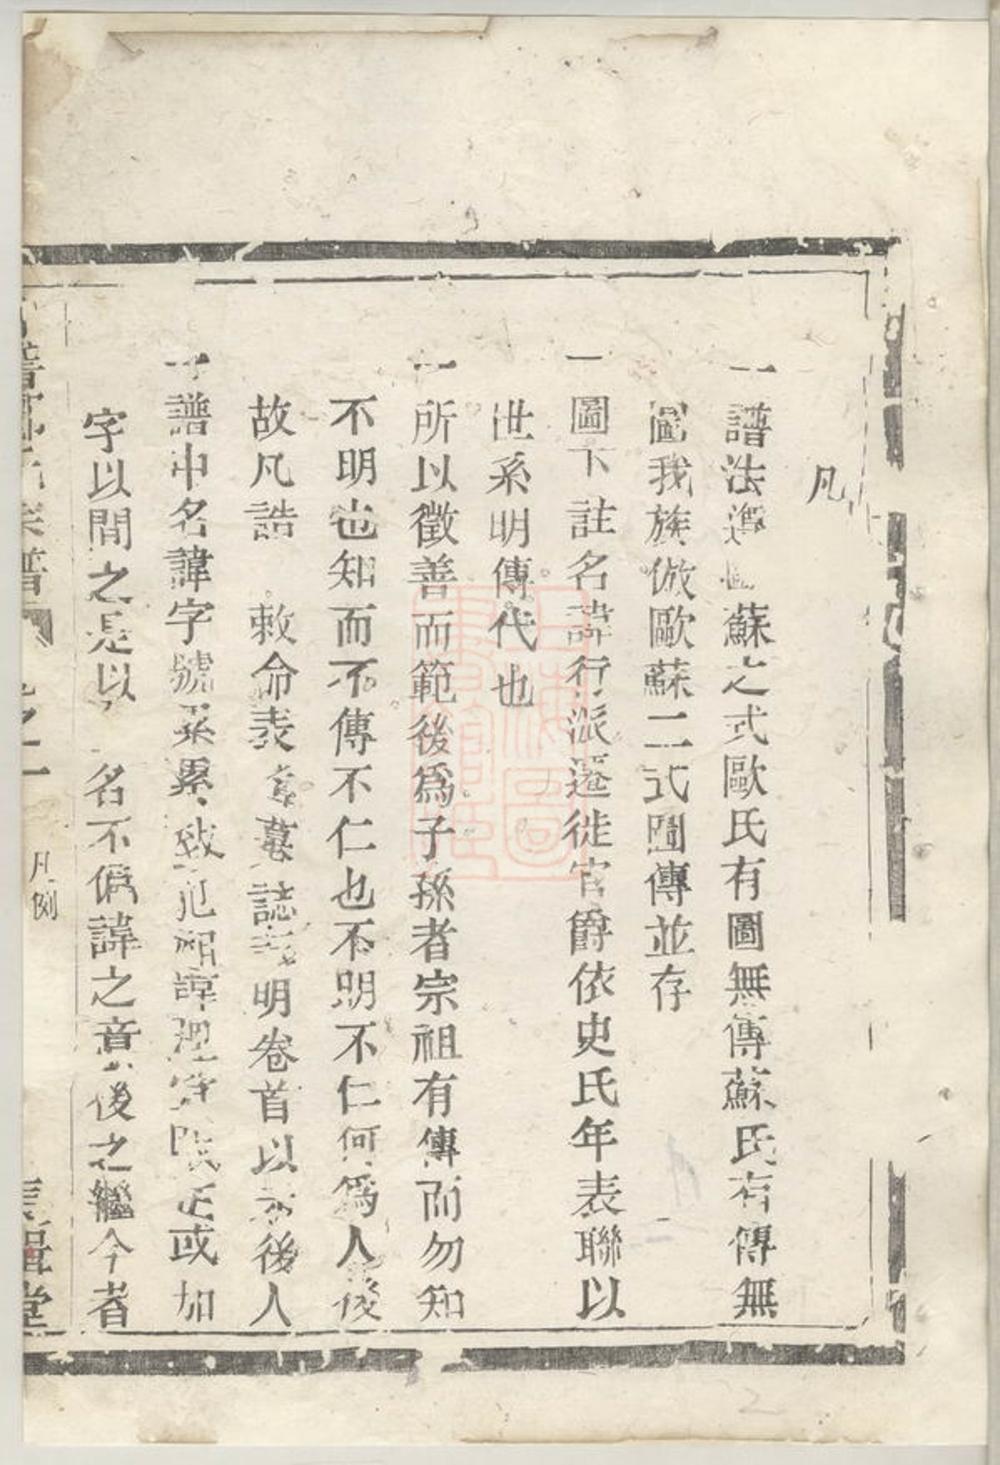 凡
一譜法 蘇之式歐氏有圖無傳蘇氏有傳無
圖我族倣歐蘇二式圖傳並存
一圖下註名諱行派遷徙官爵依史氏年表聯以
世系明傳代也
一所以徵善而範後為子孫者宗祖有傳而勿知
不明也知而不傳不仁也不明不仁何為人後
故凡誥 敕命表 墓誌 明卷首以示後人
一譜中名諱字號 累 致犯 諱 正或加
字以間之是以 名不偏諱之意後之繼今者
譜 之一 凡例 堂